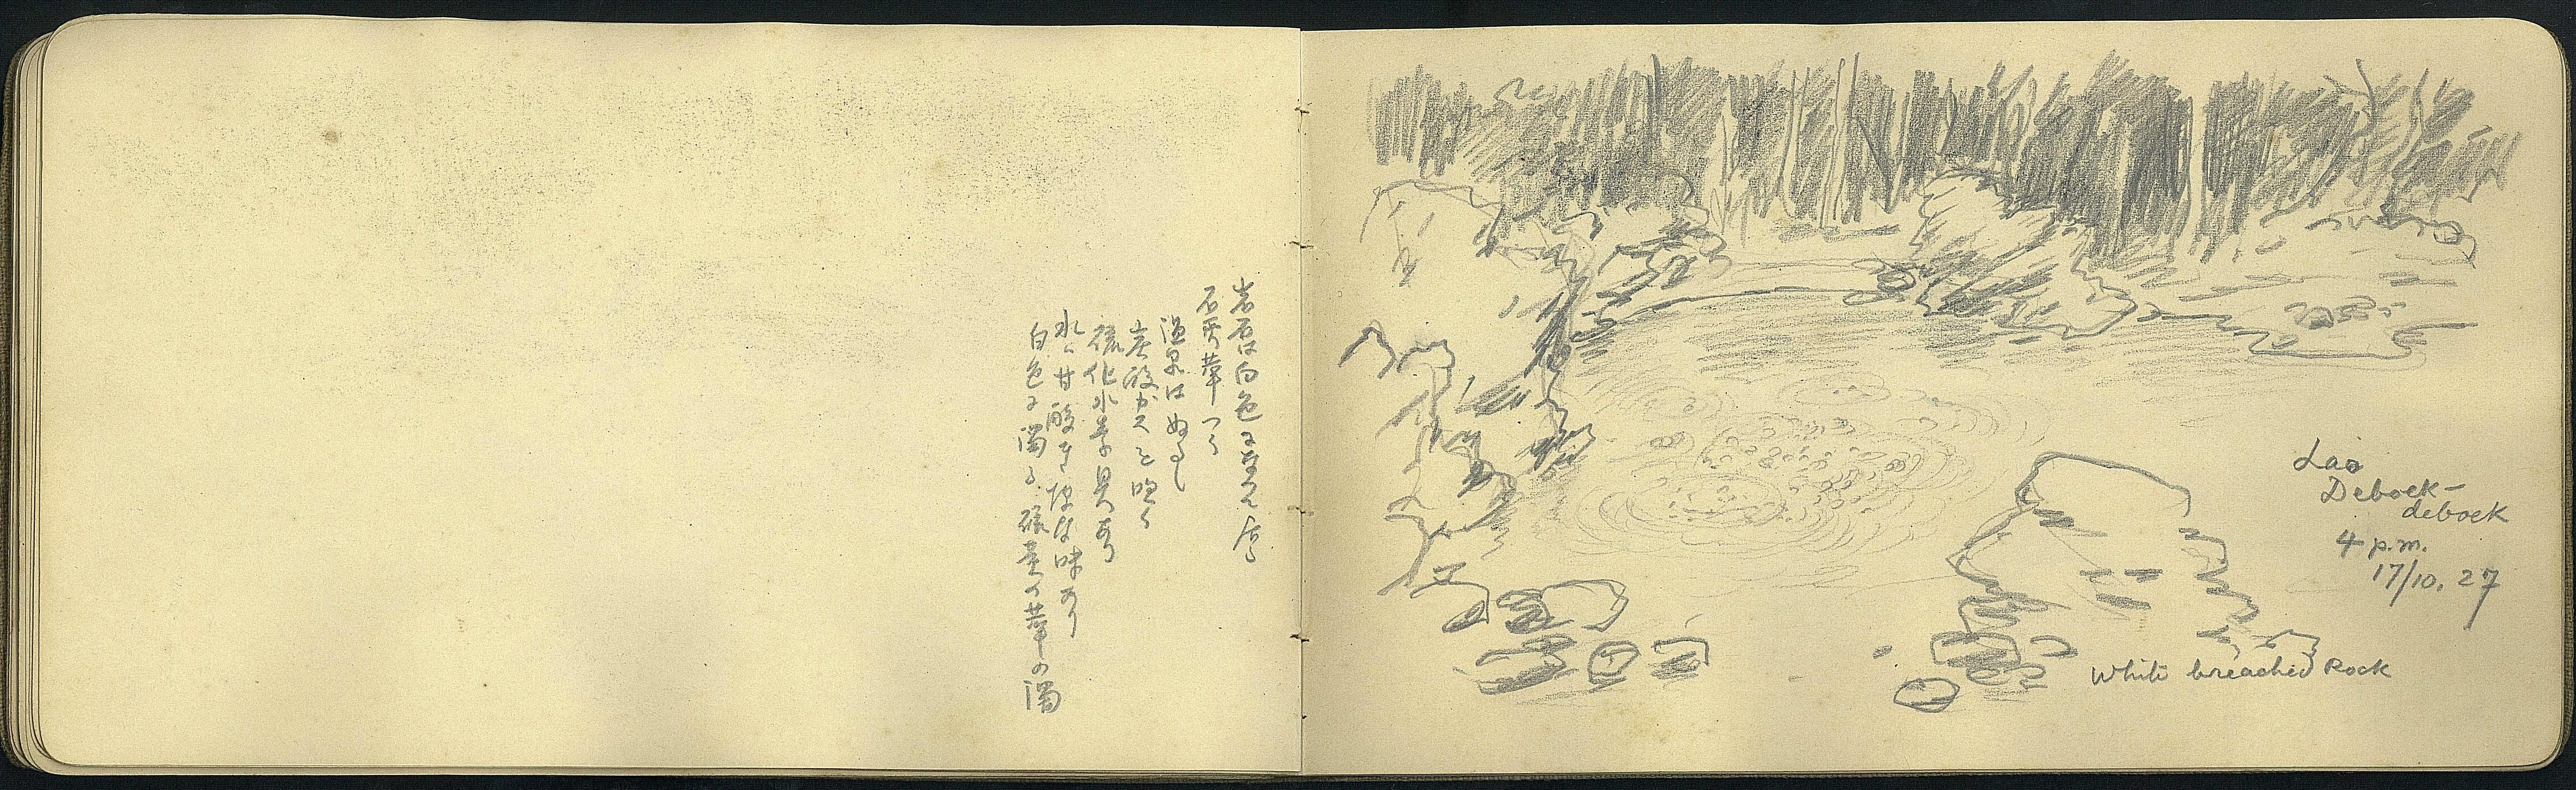 岩石は白色に変て居る
石膏華つく
温泉はぬるし
炭酸ガスを噴く
硫化水素臭あり
水は甘酸き 味あり
白色に濁る、硫黄の華の濁
Lao
Deboek-
deboek
4 p.m.
17/10. 27
White breached Rock